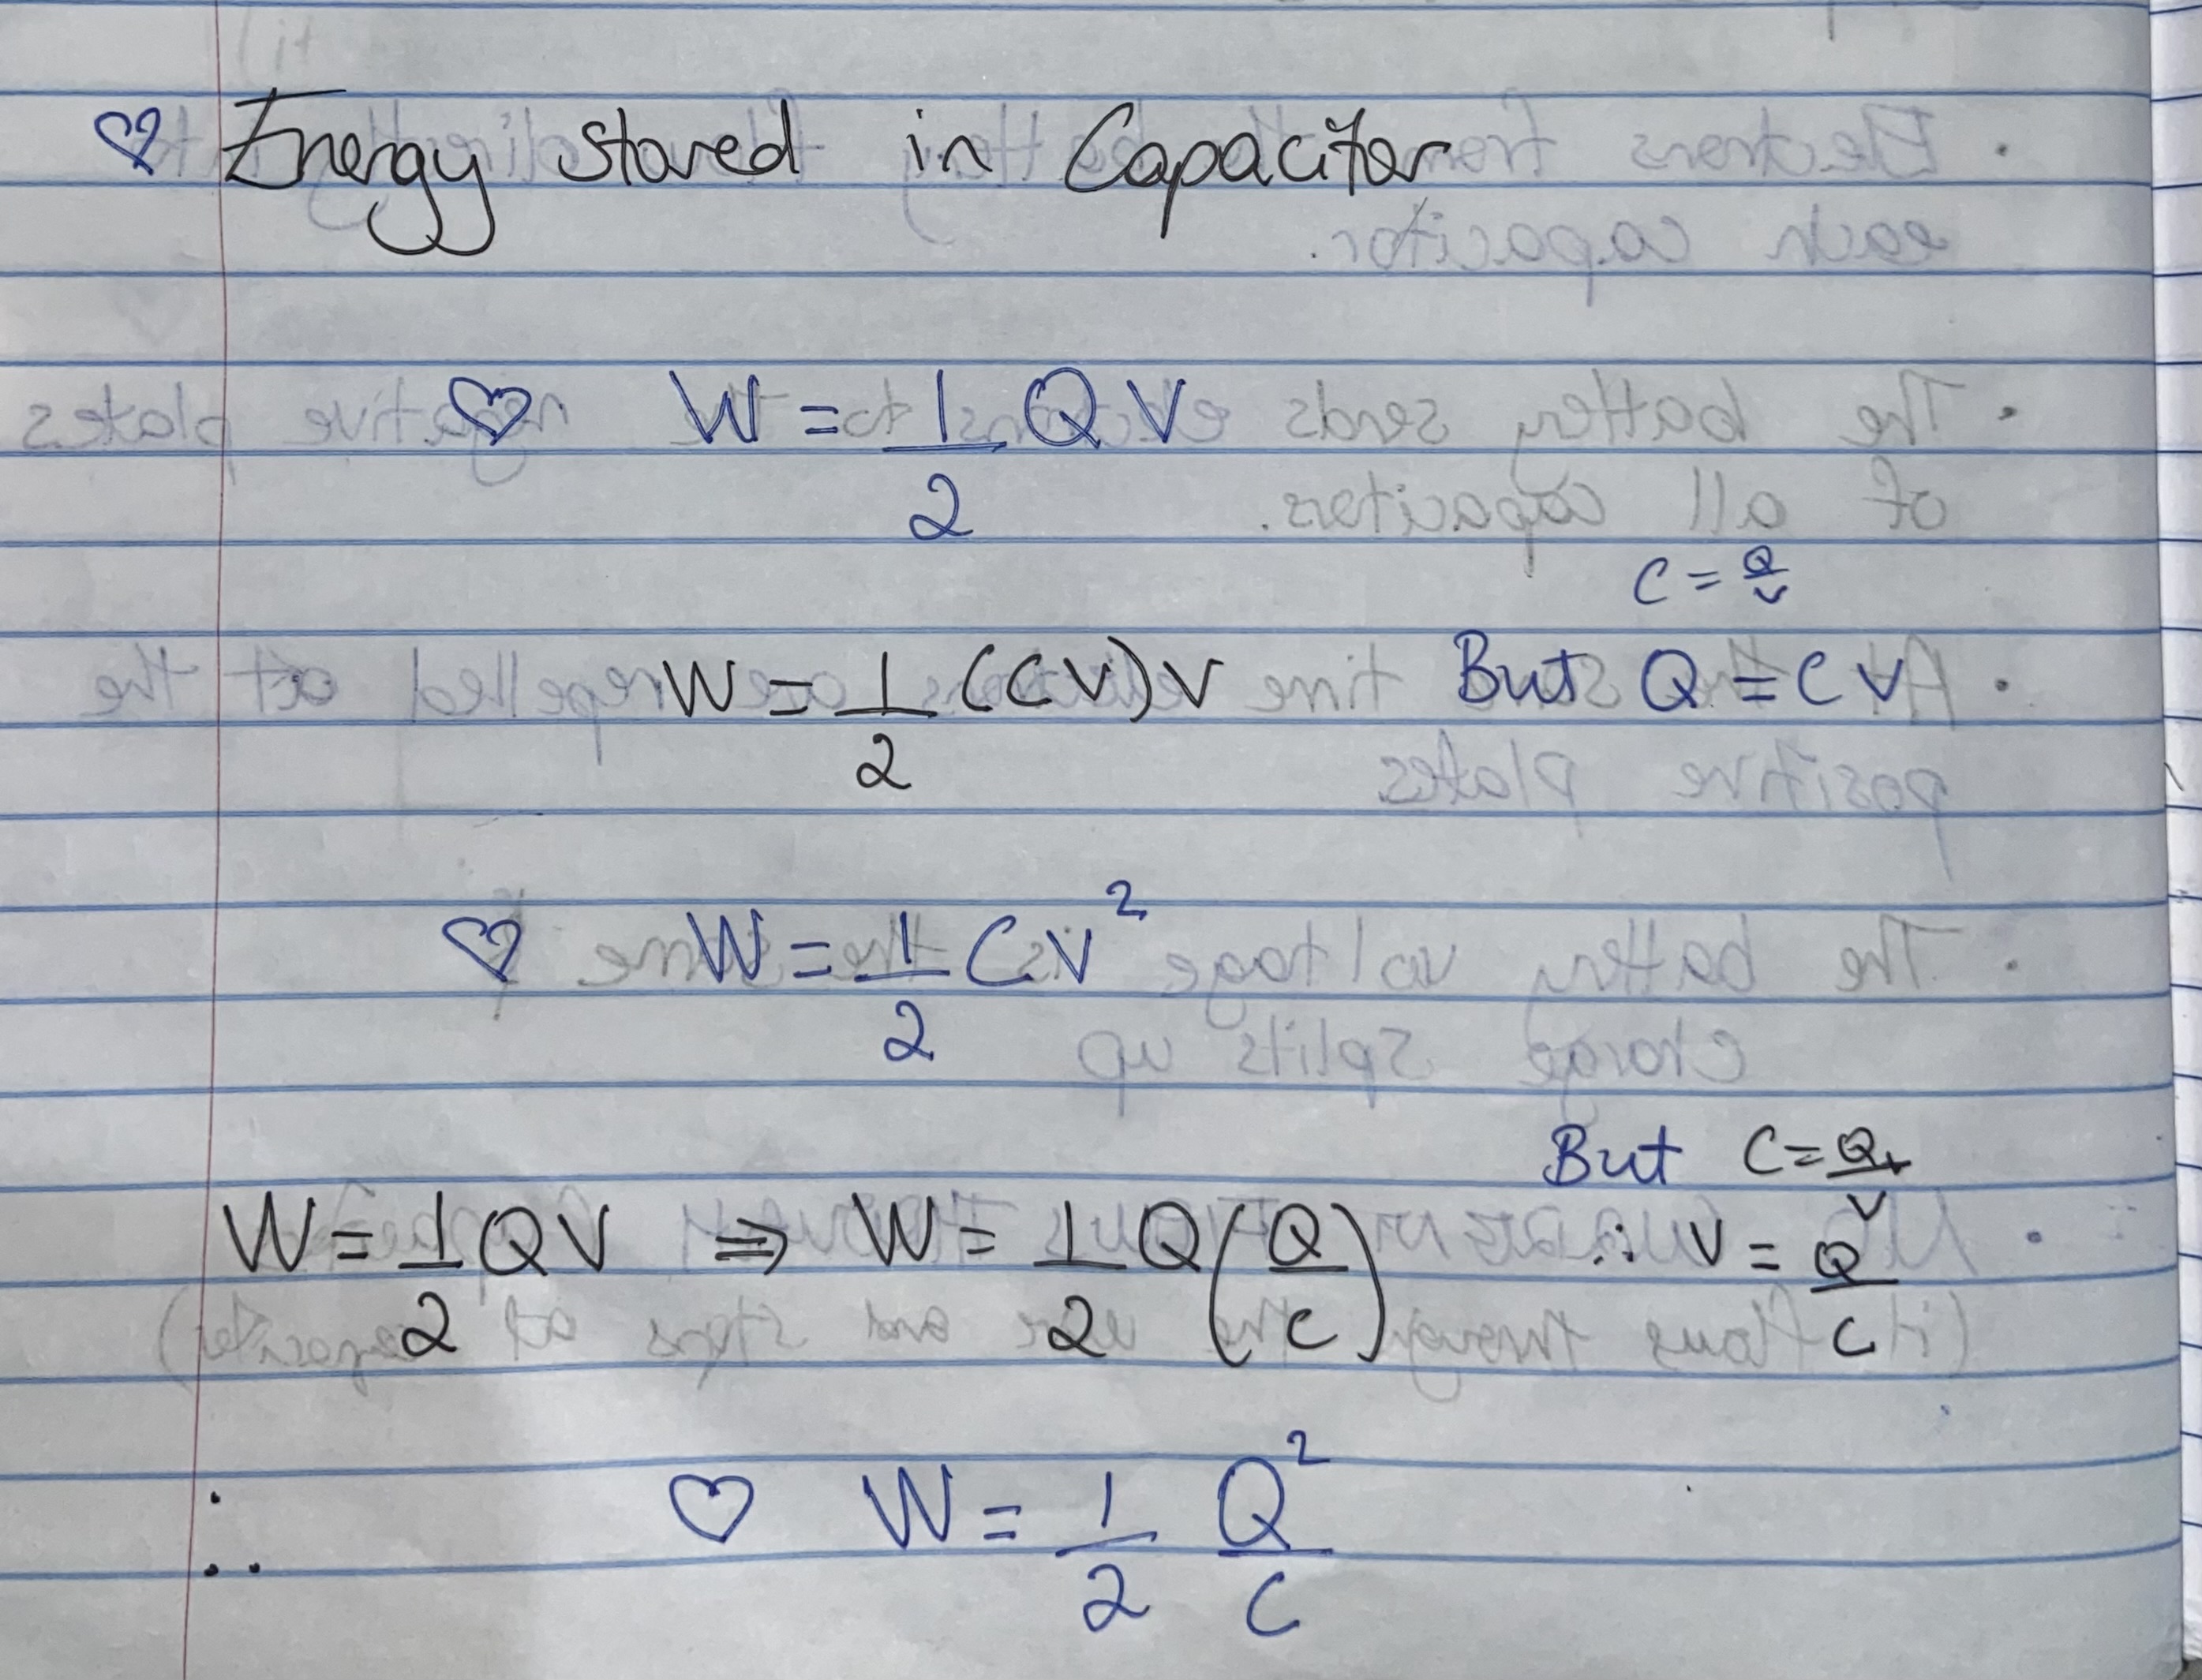 ♡ Energy stored in Capacitor
♡ W = 1/2 QV
C = Q/V
W = 1/2 (CV)V But Q = CV
♡ W = 1/2 CV²
But C = Q/V
W = 1/2 QV ⇒ W = 1/2 Q(Q/C) ∴ V = Q/C
∴ ♡ W = 1/2 Q²/C